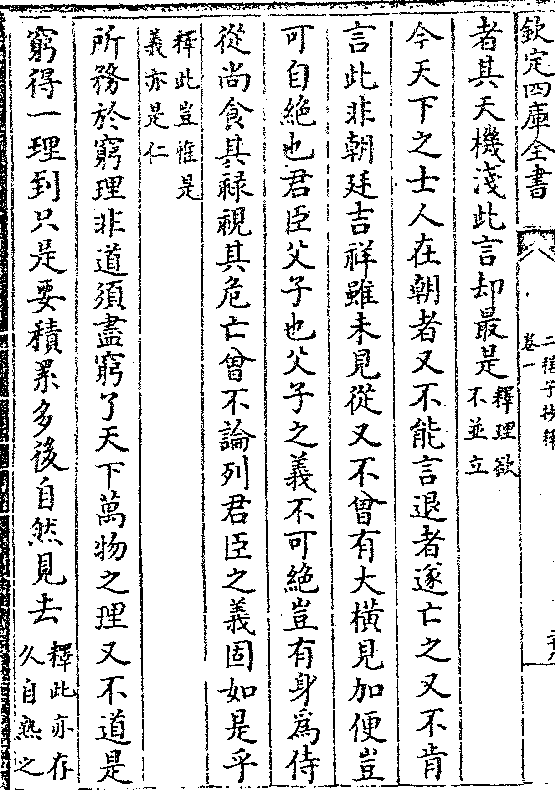 欽定四庫全書
卷一
二程子抄釋
者其天機淺此言却最是釋理欲不並立
今天下之士人在朝者又不能言退者遂亡之又不肯
言此非朝廷吉祥雖未見從又不曾有大橫見加便豈
可自絶也君臣父子也父子之義不可絶豈有身為侍
從尚食其禄視其危亡曾不論列君臣之義固如是乎
釋此豈惟是義亦是仁
所務於窮理非道須盡窮了天下萬物之理又不道是
窮得一理到只是要積累多後自然見去釋此亦存久自熟之